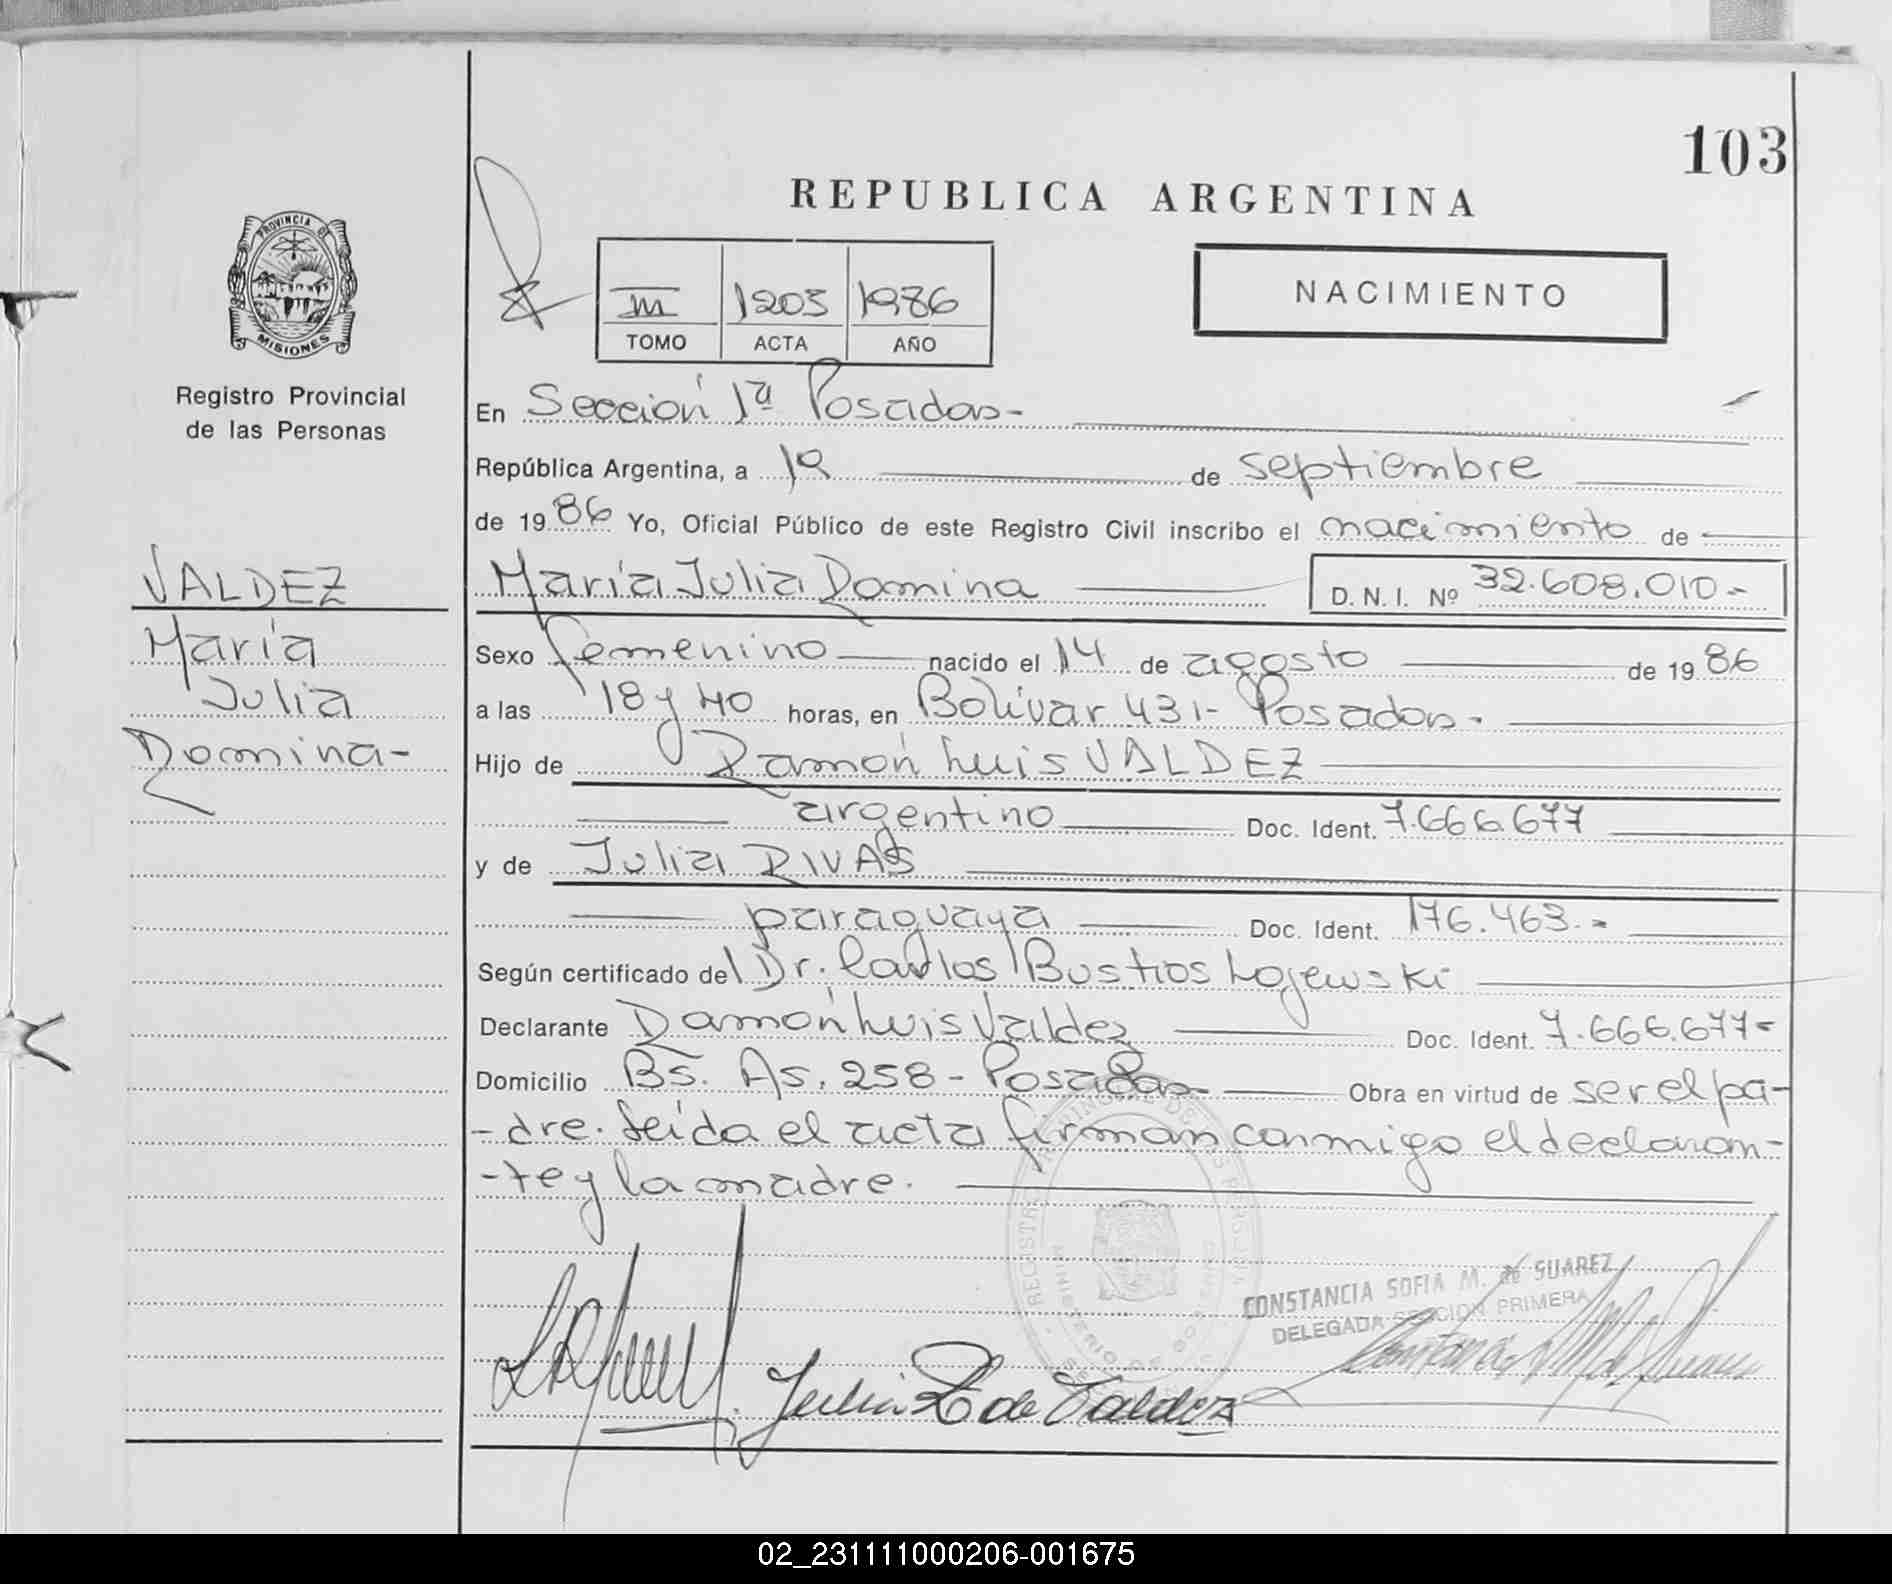 103
REPUBLICA ARGENTINA
PROVINCIA DE
MISIONES
Registro Provincial
de las Personas
III 1203 1986
TOMO ACTA AÑO
NACIMIENTO
En Sección 1ª Posadas-
República Argentina, a 19 de septiembre
de 1986 Yo, Oficial Público de este Registro Civil inscribo el nacimiento de
VALDEZ
María
Julia
Romina-
María Julia Romina D. N. I. Nº 32.608.010-
Sexo femenino nacido el 14 de agosto de 1986
a las 18 y 40 horas, en Bolívar 431- Posadas-
Hijo de Ramón Luis VALDEZ
argentino Doc. Ident. 7.666.677
y de Julia RIVAS
paraguaya Doc. Ident. 176.463.-
Según certificado del Dr. Carlos Bustos Lojewski
Declarante Ramón Luis Valdez Doc. Ident. 7.666.677-
Domicilio Bs. As. 258- Posadas- Obra en virtud de ser el pa-
-dre. Leída el acta firman conmigo el declaran-
-te y la madre.
CONSTANCIA SOFIA M. de SUAREZ
DELEGADA SECCION PRIMERA
Julia R de Valdez
02_231111000206-001675